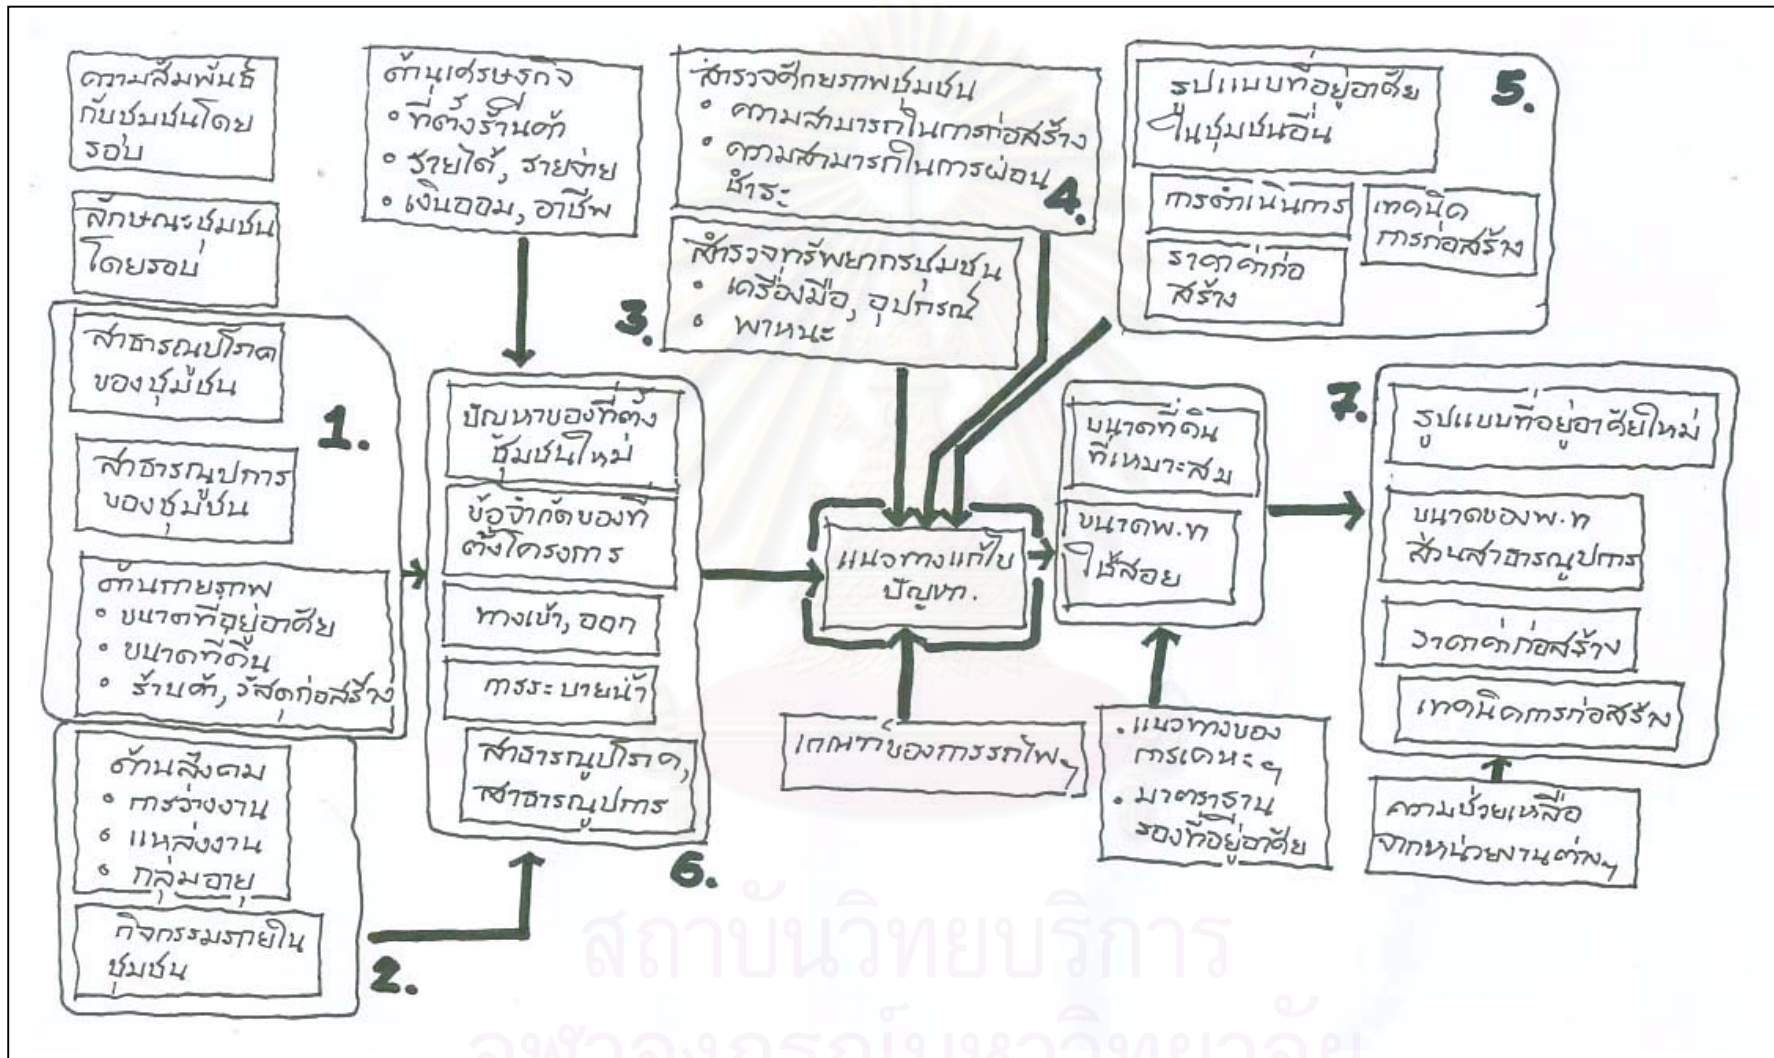 ความสัมพันธ์
กับชุมชนโดย
รอบ
ลักษณะชุมชน
โดยรอบ
สาธารณูปโภค
ของชุมชน
1.
สาธารณูปการ
ของชุมชน
ด้านกายภาพ
• ขนาดที่อยู่อาศัย
• ขนาดที่ดิน
• ร้านค้า, วัสดุก่อสร้าง
ด้านสังคม
• การว่างงาน
• แหล่งงาน
• กลุ่มอายุ
กิจกรรมภายใน
ชุมชน
2.
ด้านเศรษฐกิจ
• ที่ตั้งร้านค้า
• รายได้, รายจ่าย
• เงินออม, อาชีพ
ปัญหาของที่ตั้ง
ชุมชนใหม่
ข้อจำกัดของที่
ตั้งโครงการ
ทางเข้า, ออก
การระบายน้ำ
สาธารณูปโภค,
สาธารณูปการ
6.
สำรวจศักยภาพชุมชน
• ความสามารถในการก่อสร้าง
• ความสามารถในการผ่อน
ชำระ
4.
สำรวจทรัพยากรชุมชน
• เครื่องมือ, อุปกรณ์
• พาหนะ
3.
แนวทางแก้ไข
ปัญหา.
เกณฑ์ของการรถไฟฯ
5.
รูปแบบที่อยู่อาศัย
ในชุมชนอื่น
การดำเนินการ
เทคนิค
การก่อสร้าง
ราคาค่าก่อ
สร้าง
ขนาดที่ดิน
ที่เหมาะสม
ขนาดพ.ท
ใช้สอย
• แนวทางของ
การเคหะฯ
• มาตราฐาน
ของที่อยู่อาศัย
7.
รูปแบบที่อยู่อาศัยใหม่
ขนาดของพ.ท
ส่วนสาธารณูปการ
ราคาค่าก่อสร้าง
เทคนิคการก่อสร้าง
ความช่วยเหลือ
จากหน่วยงานต่างๆ
สถาบันวิทยบริการ
จุฬาลงกรณ์มหาวิทยาลัย